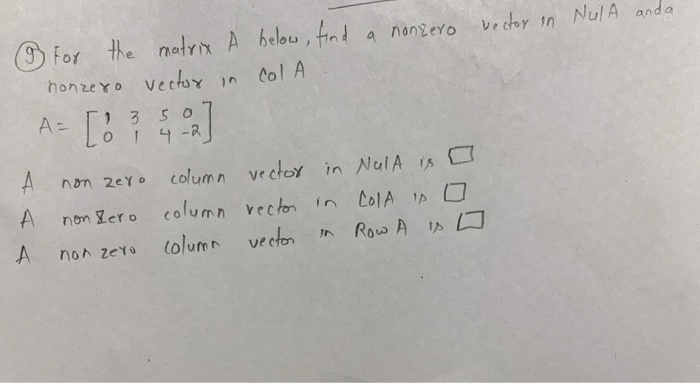 9) For the matrix A below, find a nonzero vector in NulA and a
nonzero vector in Col A
A = [1 3 5 0
0 1 4 -2]
A non zero column vector in NulA is □
A non zero column vector in ColA is □
A non zero column vector in Row A is □